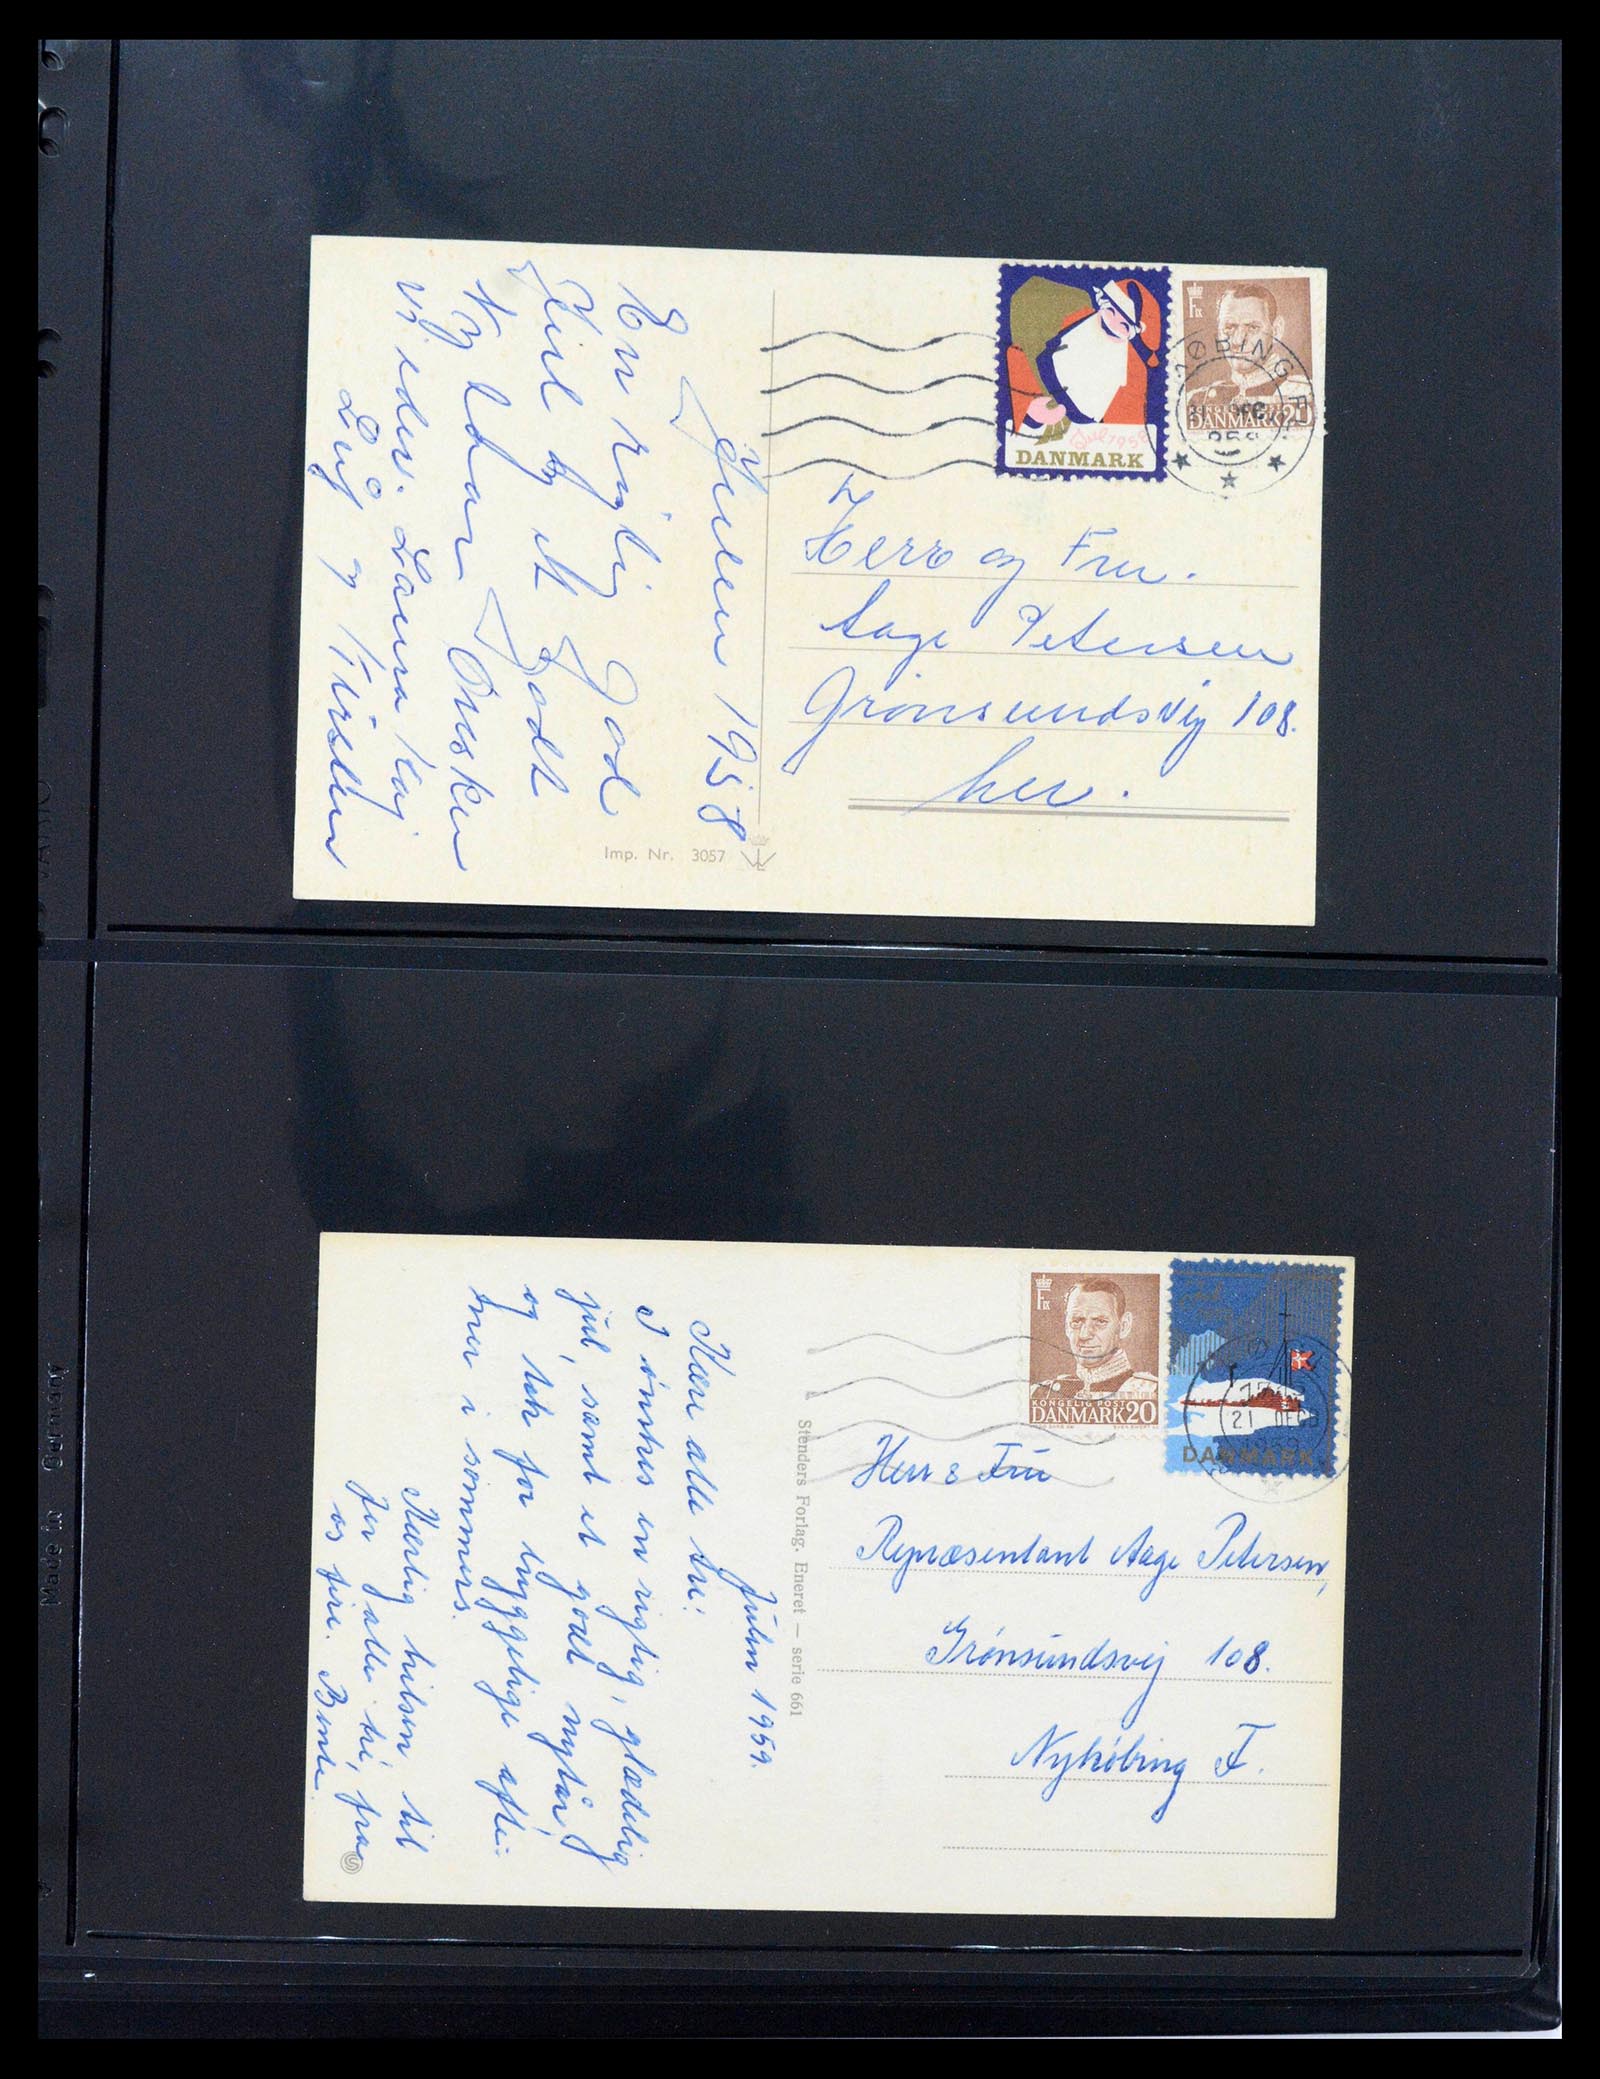 Julen 1958
En rigtig God
Jul og et Godt
Nytaar Ønsker
vi eder. Laura Kaj
og Kirsten
Imp. Nr. 3057
Jul 1958
DANMARK
DANMARK 20
KØBING F
Herr og Fru.
Aage Petersen
Grønsundsvej 108.
her.
Julen 1959.
Kære alle tre!
I ønskes en rigtig, glædelig
jul, samt et godt nytår,
og tak for hyggelige afte-
ner i sommers.
Kærlig hilsen til
jer alle tre, fra
os fire. Bente
Stenders Forlag. Eneret — serie 661
KONGELIG POST
DANMARK 20
DANMARK
21 DEC
Herr & Fru
Repræsentant Aage Petersen,
Grønsundsvej 108.
Nykøbing F.
Made in Germany